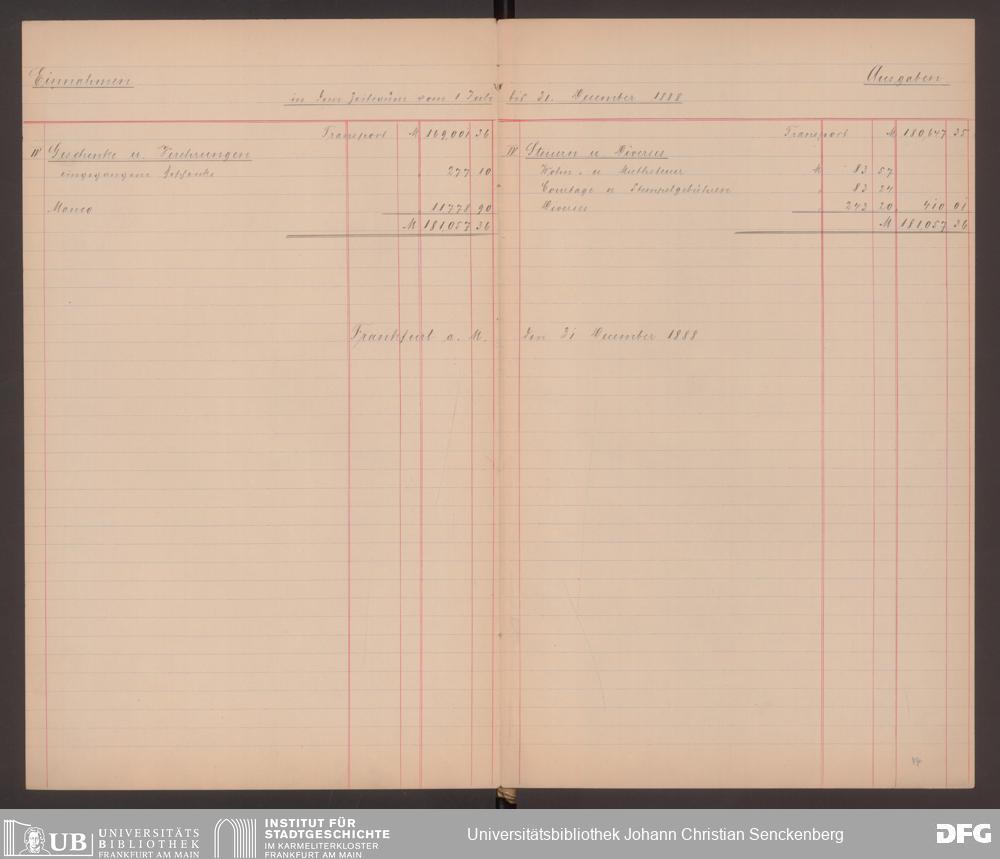 Einnahmen
in dem Zeitraum vom 1 Juli bis 31. December 1888
Ausgaben
Transport M 169,001 36
IV Geschenke u. Verehrungen
eingegangene Geschenke 277 10
Manco 11778 90
M 181,057 36
Transport M 180,647 35
IV Steuern u Diverses
Wohn- u Miethsteuer M 83 57
Courtage u Stempelgebühren 83 24
Diverses 243 20 410 01
M 181,057 36
Frankfurt a. M. den 31 December 1888
UB UNIVERSITÄTS
BIBLIOTHEK
FRANKFURT AM MAIN
INSTITUT FÜR
STADTGESCHICHTE
IM KARMELITERKLOSTER
FRANKFURT AM MAIN
Universitätsbibliothek Johann Christian Senckenberg
DFG